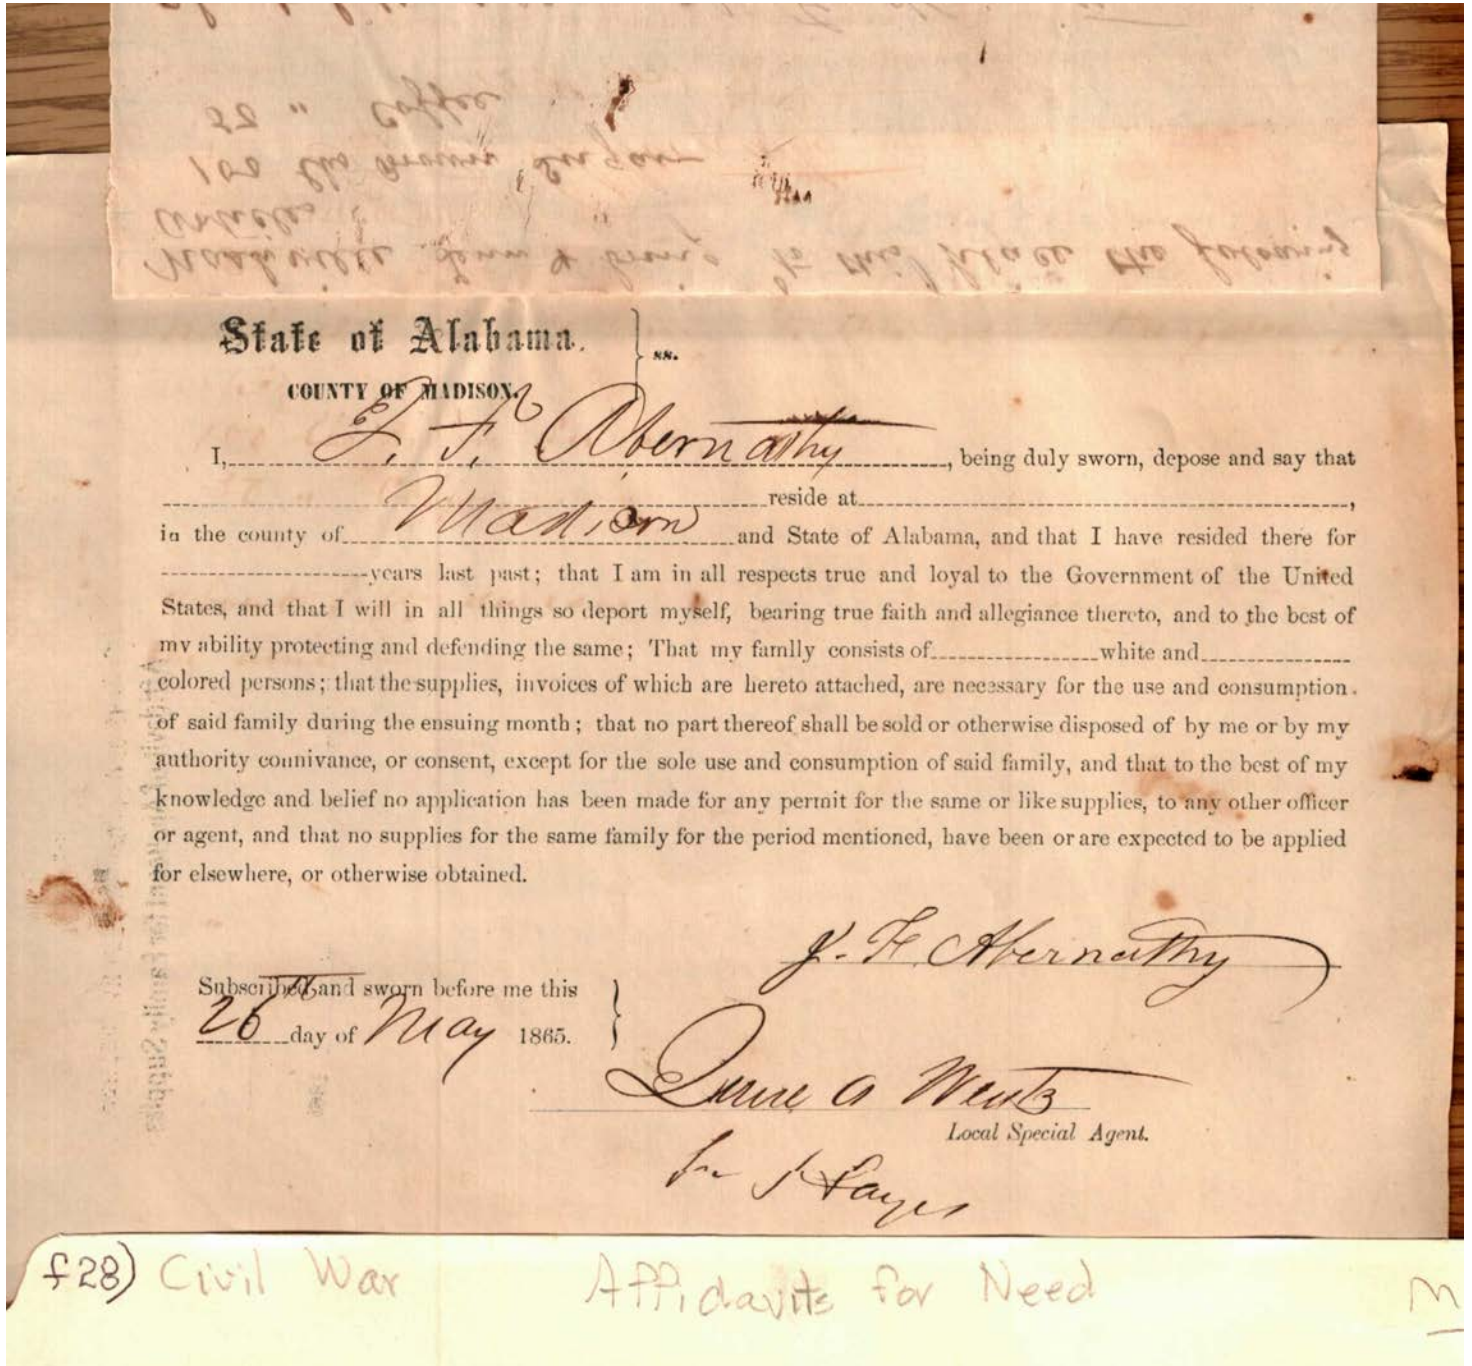 Nashville Tenn & bring to this place the following
articles
100 lbs Brown Sugar
50 " Coffee
State of Alabama. } ss.
COUNTY OF MADISON.
I, Abernathy, being duly sworn, depose and say that
reside at,
in the county of Madison and State of Alabama, and that I have resided there for
years last past; that I am in all respects true and loyal to the Government of the United
States, and that I will in all things so deport myself, bearing true faith and allegiance thereto, and to the best of
my ability protecting and defending the same; That my famlly consists of white and
colored persons; that the supplies, invoices of which are hereto attached, are necessary for the use and consumption
of said family during the ensuing month; that no part thereof shall be sold or otherwise disposed of by me or by my
authority connivance, or consent, except for the sole use and consumption of said family, and that to the best of my
knowledge and belief no application has been made for any permit for the same or like supplies, to any other officer
or agent, and that no supplies for the same family for the period mentioned, have been or are expected to be applied
for elsewhere, or otherwise obtained.
J. F. Abernathy
Subscribed and sworn before me this
26th day of May 1865. }
Local Special Agent.
Hayes
f28) Civil War Affidavits for Need M